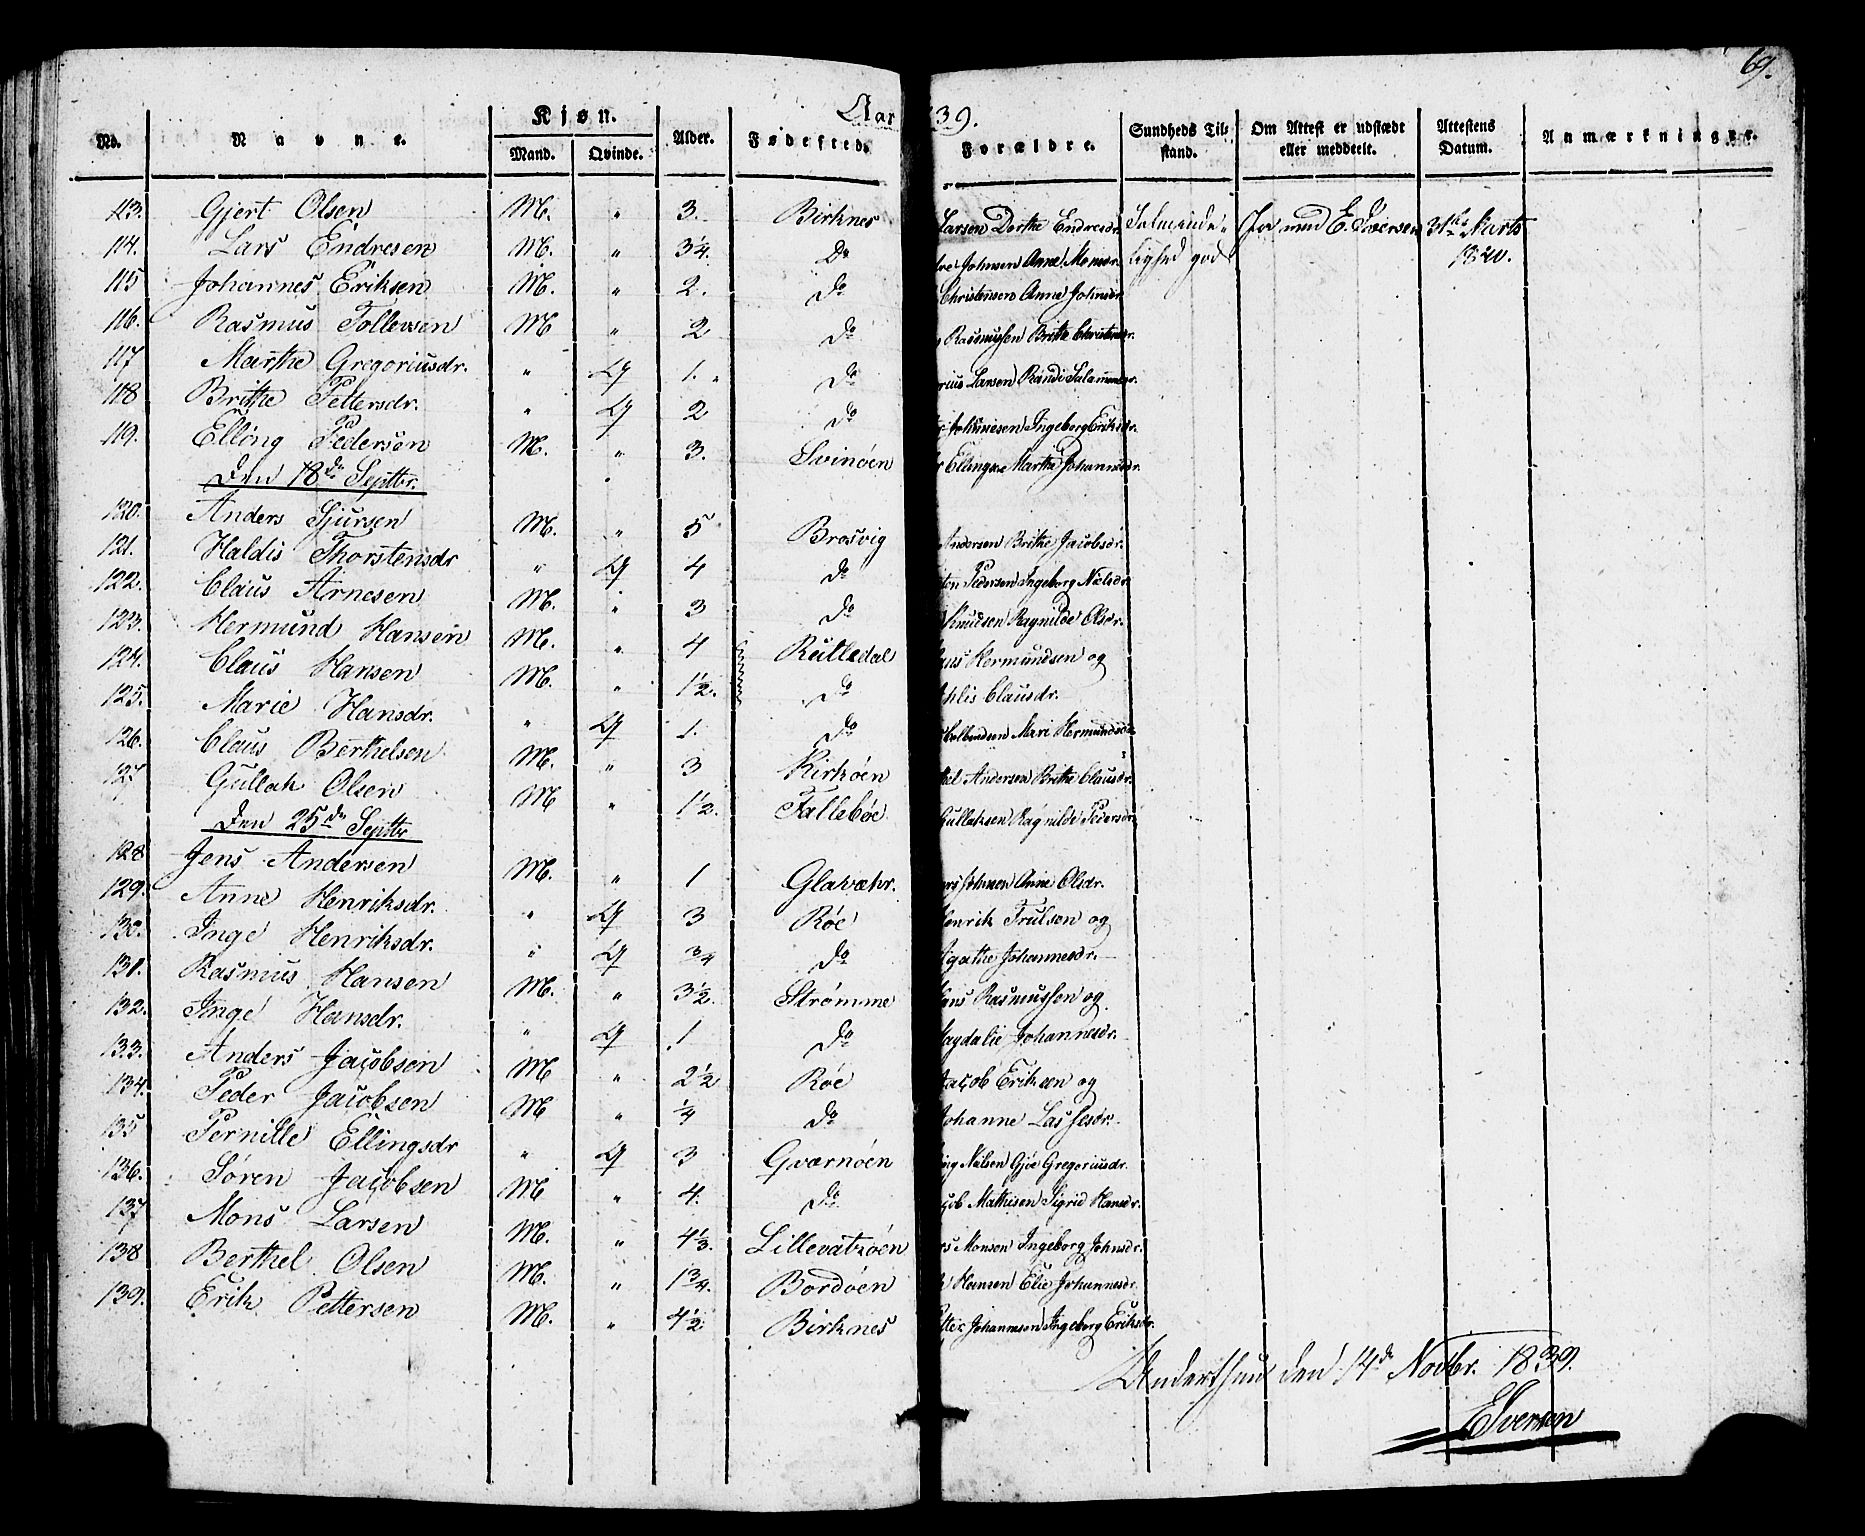 69.
Aar 39.
No. Navne. Kjøn. Mand. Qvinde. Alder. Fødested. Forældre. Sundheds Tilstand. Om Attest er udstædt eller meddeelt. Attestens Datum. Anmærkninger.
113. Gjert Olsen M. " 3. Birknes Larsen Dorthe Endresdr. Almindelighed god E. Iversen 31te Marts 1840.
114. Lars Endresen M. " 3¼. Do Johnsen Anne Monsdr.
115 Johannes Eriksen M. " 2. Do Christensen Anne Johnsdr.
116. Rasmus Tollevsen M " 2 Do Rasmussen Brithe Christensdr.
117 Marthe Gregoriusdr. " Q 1. Do rius Larsen Randi Salamonsdr.
118 Brithe Pettersdr. " Q 2 Do Johannesen Ingeborg Eriksdr.
119. Elling Pedersen M. " 3. Svinöen Ellingsen Marthe Johannesdr.
Den 18de Septbr.
120. Anders Sjursen M. " 5 Brosvig Andersen Brithe Jacobsdr.
121. Haldis Thorstensdr " Q 4 do ten Pedersen Ingeborg Nielsdr.
122. Claus Arnesen M. " 3 do Knudsen Ragnilde Olsdr.
123. Hermund Hansen M. " 4 Rülledal ans Hermundsen og
124. Claus Hansen M. " 1½. Do Clausdr.
125. Marie Hansdr. " Q 1. do Mari Hermundsdr.
126. Claus Berthelsen M. " 3 Kirköen el Andersen Brithe Clausdr.
127 Gullak Olsen M " 1½. Falleböe Gullaksen Ragnilde Pedersdr.
Den 25de Septbr
128 Jens Andersen M. " 1 Glavæhr. ers Johnsen Anne Olsdr.
129. Anne Henriksdr. " Q 3 Röe Henrik Trulsen og
130. Inge Henriksdr. " Q ¾ do Agathe Johannesdr.
131. Rasmus Hansen M. " 3½. Strömme Hans Rasmussen og
132. Inge Hansdr. " Q 1 Do Magdalie Johannesdr.
133. Anders Jacobsen M " 2½ Röe Jacob Eriksen og
134. Peder Jacobsen M " ¼ do Johanne Lassesdr.
135 Pernille Ellingsdr " Q 3 Gværnöen ing Nielsen Gjöe Gregoriusdr.
136. Sören Jacobsen M " 4. do cob Mathisen Sigrid Hansdr.
137 Mons Larsen M. " 4⅓. Lillevatsöen rs Monsen Ingeborg Johnsdr.
138 Berthel Olsen M. " 1¾. Bordöen Hansen Elie Johannesdr.
139. Erik Pettersen M. " 4½ Birknes Johannesen Ingeborg Eriksdr.
den 14de Novbr. 1839.
E Iversen